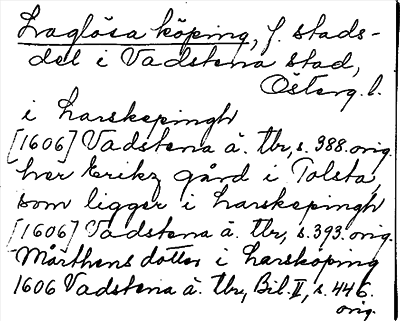 Laglösa köping, f. stads-
del i Vadstena stad,
Österg. l.
i Larskepingh
[1606] Vadstena ä. tbr, s. 388. orig.
her Erikz gård i Tolsta,
som ligger i Larskepingh
[1606] Vadstena ä. tbr, s. 393. orig.
Mårthens dotter i Larsköping
1606 Vadstena ä. tbr, Bil. II, s. 446.
orig.